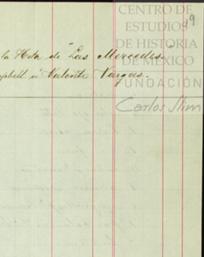 CENTRO DE
ESTUDIOS
DE HISTORIA
DE MÉXICO
FUNDACIÓN
Carlos Slim
49
la Hda. de "Las Mercedes."
mpbell á Valente Vargas.